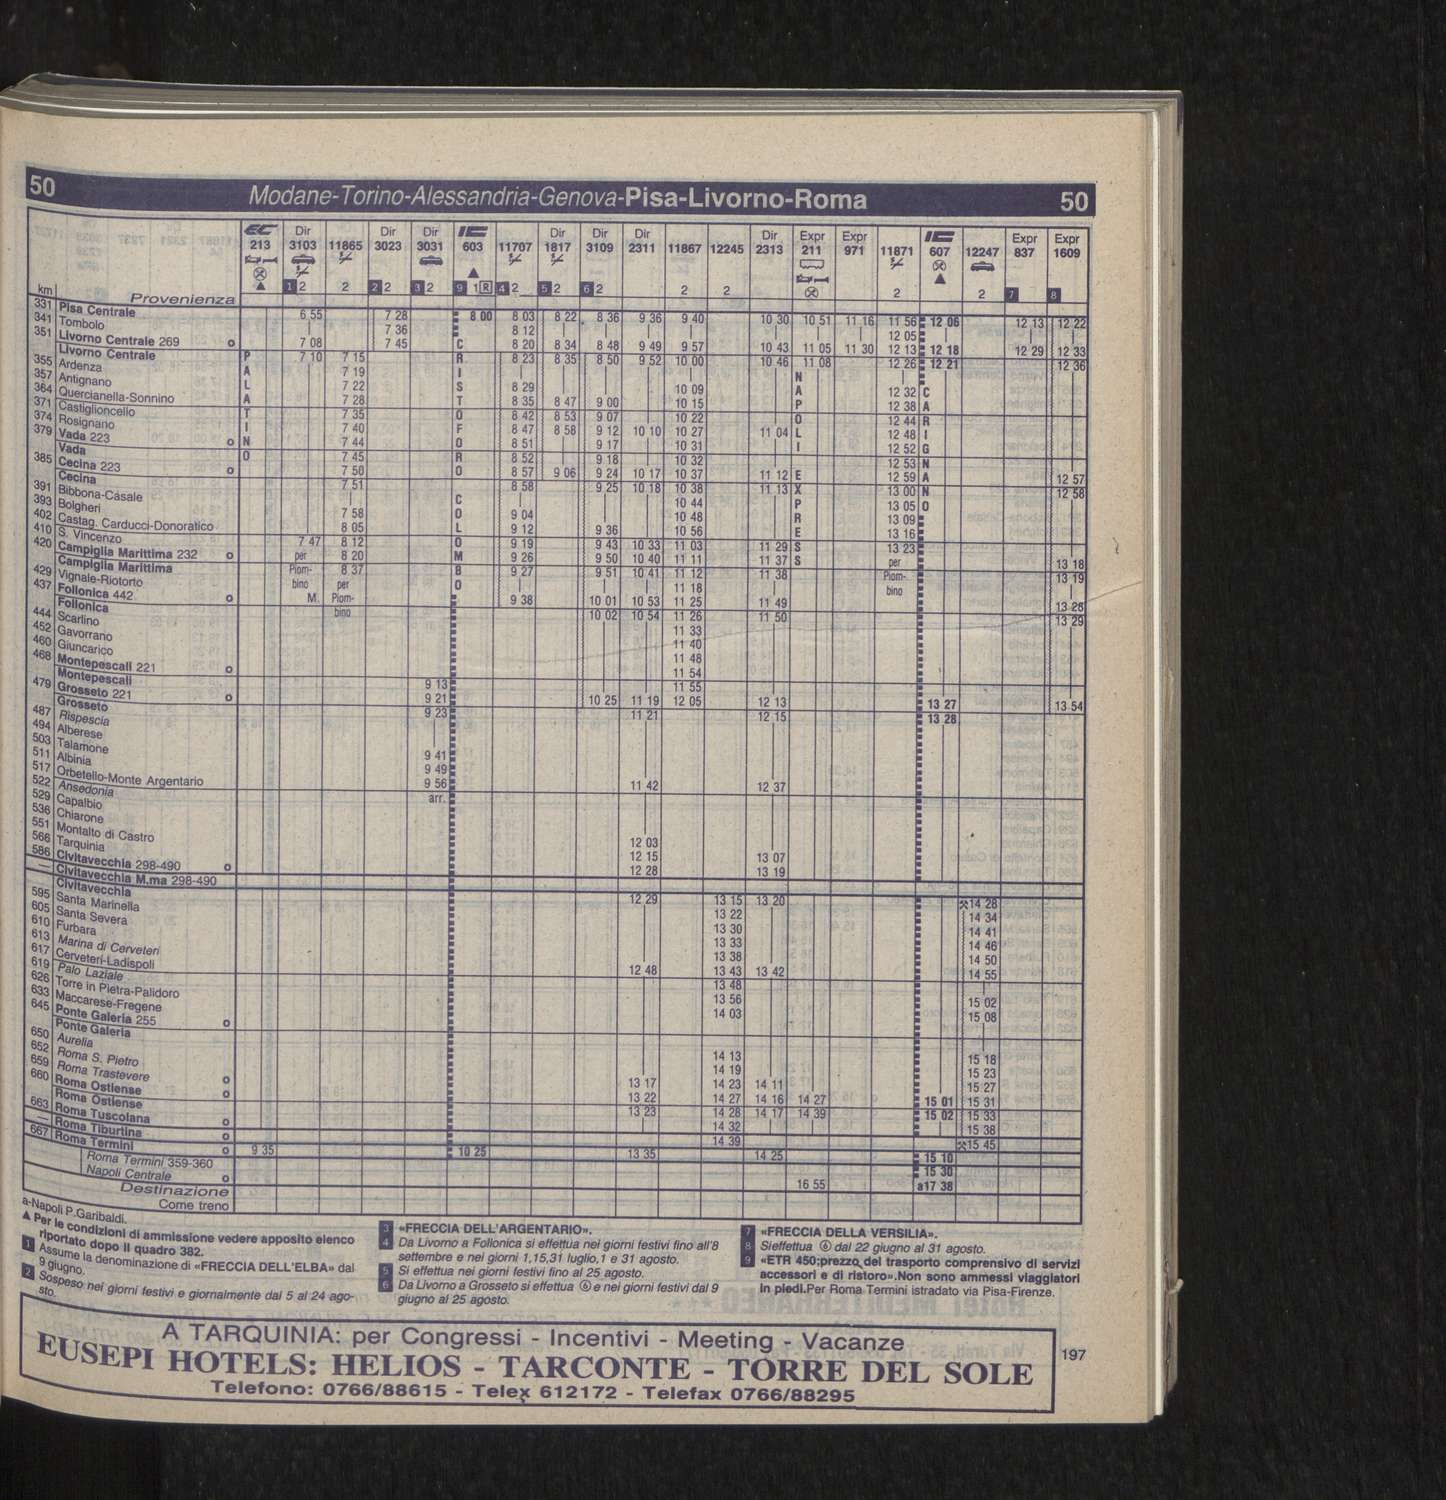 50 Modane-Torino-Alessandria-Genova-Pisa-Livorno-Roma 50
EC 213 Dir 3103 11865 Dir 3023 Dir 3031 IC 603 11707 Dir 1817 Dir 3109 Dir 2311 11867 12245 Dir 2313 Expr 211 Expr 971 11871 IC 607 12247 Expr 837 Expr 1609
1 2 2 2 2 3 2 9 1 R 4 2 5 2 6 2 2 2 2 2 7 8
km Provenienza
331 Pisa Centrale 6 55 7 28 8 00 8 03 8 22 8 36 9 36 9 40 10 30 10 51 11 16 11 56 12 06 12 13 12 22
341 Tombolo 7 36 8 12 12 05
351 Livorno Centrale 269 o 7 08 7 45 8 20 8 34 8 48 9 49 9 57 10 43 11 05 11 30 12 13 12 18 12 29 12 33
Livorno Centrale 7 10 7 15 8 23 8 35 8 50 9 52 10 00 10 46 11 08 12 26 12 21 12 36
355 Ardenza 7 19
357 Antignano 7 22 8 29 10 09 12 32
364 Quercianella-Sonnino 7 28 8 35 8 47 9 00 10 15 12 38
371 Castiglioncello 7 35 8 42 8 53 9 07 10 22 12 44
374 Rosignano 7 40 8 47 8 58 9 12 10 10 10 27 11 04 12 48
379 Vada 223 o 7 44 8 51 9 17 10 31 12 52
Vada 7 45 8 52 9 18 10 32 12 53
385 Cecina 223 o 7 50 8 57 9 06 9 24 10 17 10 37 11 12 12 59 12 57
Cecina 7 51 8 58 9 25 10 18 10 38 11 13 13 00 12 58
391 Bibbona-Casale 10 44 13 05
393 Bolgheri 7 58 9 04 10 48 13 09
402 Castag. Carducci-Donoratico 8 05 9 12 9 36 10 56 13 16
410 S. Vincenzo 7 47 8 12 9 19 9 43 10 33 11 03 11 29 13 23
420 Campiglia Marittima 232 o per 8 20 9 26 9 50 10 40 11 11 11 37 per 13 18
Campiglia Marittima Piom- 8 37 9 27 9 51 10 41 11 12 11 38 Piom- 13 19
429 Vignale-Riotorto bino per 11 18 bino
437 Follonica 442 o M. Piom- 9 38 10 01 10 53 11 25 11 49 13 28
Follonica bino 10 02 10 54 11 26 11 50 13 29
444 Scarlino 11 33
452 Gavorrano 11 40
460 Giuncarico 11 48
468 Montepescali 221 o 11 54
Montepescali 9 13 11 55
479 Grosseto 221 o 9 21 10 25 11 19 12 05 12 13 13 27 13 54
Grosseto 9 23 11 21 12 15 13 28
487 Rispescia
494 Alberese
503 Talamone 9 41
511 Albinia 9 49
517 Orbetello-Monte Argentario 9 56 11 42 12 37
522 Ansedonia arr.
529 Capalbio
536 Chiarone
551 Montalto di Castro 12 03
566 Tarquinia 12 15 13 07
586 Civitavecchia 298-490 o 12 28 13 19
— Civitavecchia M.ma 298-490
Civitavecchia 12 29 13 15 13 20 14 28
595 Santa Marinella 13 22 14 34
605 Santa Severa 13 30 14 41
610 Furbara 13 33 14 46
613 Marina di Cerveteri 13 38 14 50
617 Cerveteri-Ladispoli 12 48 13 43 13 42 14 55
619 Palo Laziale 13 48
626 Torre in Pietra-Palidoro 13 56 15 02
633 Maccarese-Fregene 14 03 15 08
645 Ponte Galeria 255 o
Ponte Galeria
650 Aurelia 14 13 15 18
652 Roma S. Pietro 14 19 15 23
659 Roma Trastevere o 13 17 14 23 14 11 15 27
660 Roma Ostiense o 13 22 14 27 14 16 14 27 15 01 15 31
Roma Ostiense 13 23 14 28 14 17 14 39 15 02 15 33
663 Roma Tuscolana o 14 32 15 38
— Roma Tiburtina o 14 39 15 45
667 Roma Termini o 9 35 10 25 13 35 14 25 15 10
Roma Termini 359-360 15 30
Napoli Centrale o 16 55 a17 38
Destinazione
Come treno
PALATINO
CRISTOFORO COLOMBO
NAPOLI EXPRESS
CARIGNANO
a-Napoli P.Garibaldi.
▲ Per le condizioni di ammissione vedere apposito elenco
riportato dopo il quadro 382.
1 Assume la denominazione di «FRECCIA DELL'ELBA» dal
9 giugno.
2 Sospeso nei giorni festivi e giornalmente dal 5 al 24 ago-
sto.
3 «FRECCIA DELL'ARGENTARIO».
4 Da Livorno a Follonica si effettua nei giorni festivi fino all'8
settembre e nei giorni 1,15,31 luglio,1 e 31 agosto.
5 Si effettua nei giorni festivi fino al 25 agosto.
6 Da Livorno a Grosseto si effettua ⑥ e nei giorni festivi dal 9
giugno al 25 agosto.
7 «FRECCIA DELLA VERSILIA».
8 Sieffettua ⑥ dal 22 giugno al 31 agosto.
9 «ETR 450:prezzo del trasporto comprensivo di servizi
accessori e di ristoro».Non sono ammessi viaggiatori
in piedi.Per Roma Termini istradato via Pisa-Firenze.
A TARQUINIA: per Congressi - Incentivi - Meeting - Vacanze
EUSEPI HOTELS: HELIOS - TARCONTE - TORRE DEL SOLE
Telefono: 0766/88615 - Telex 612172 - Telefax 0766/88295
197